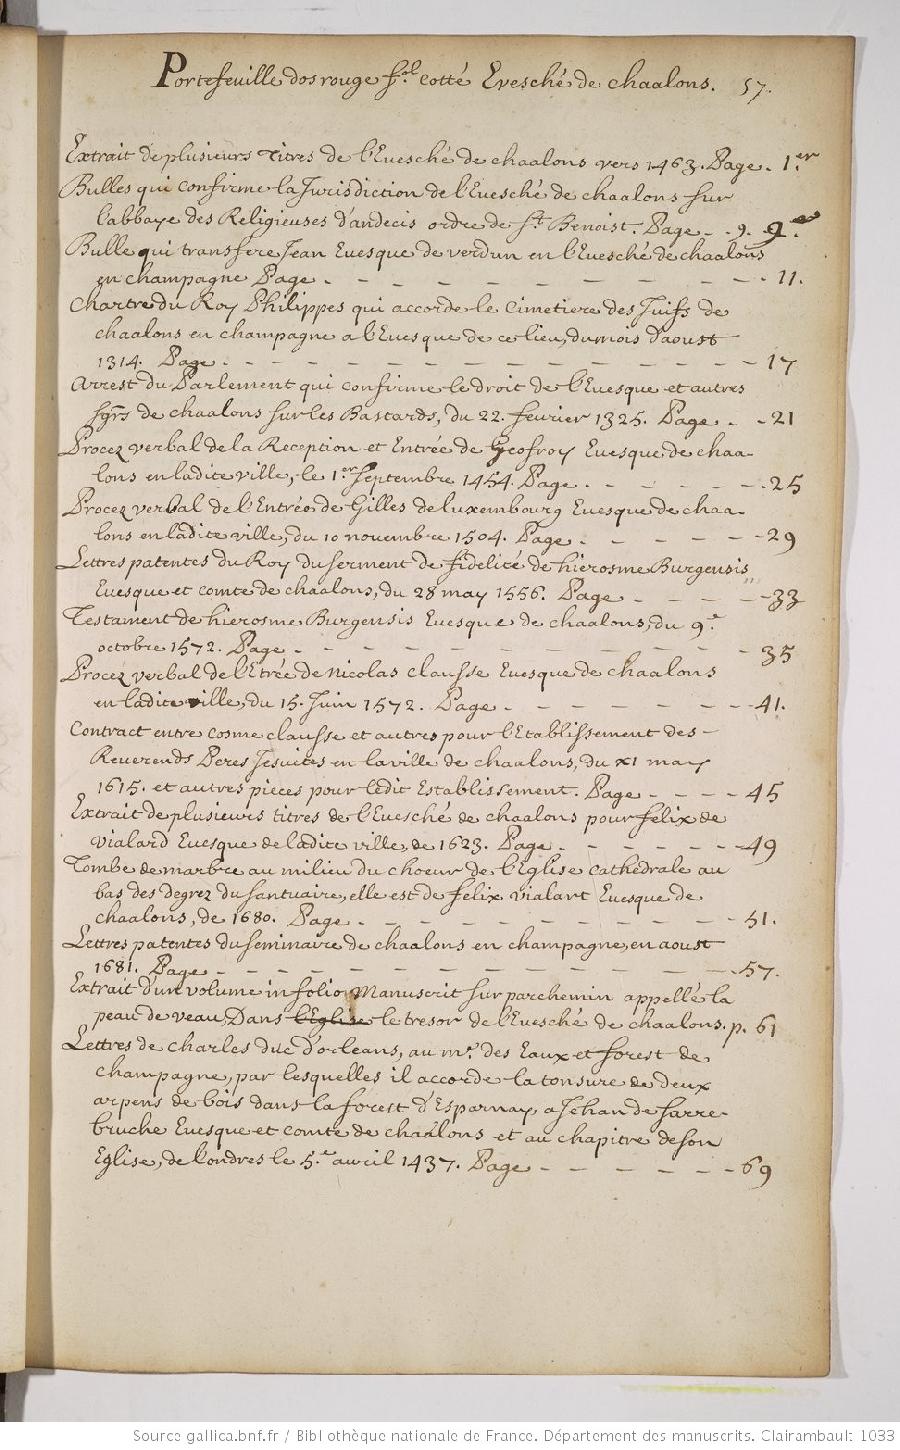 Portefeuille dos rouge f.ol cotté Evesché de chaalons. 57.
Extrait de plusieurs Titres de l'Euesché de chaalons vers 1463. Page. 1.er
Bulles qui confirme la Jurisdiction de l'Euesché de chaalons sur
l'abbaye des Religieuses d'andecis ordre de St. Benoist. Page - . 9.
Bulle qui transfere Jean Euesque de verdun en l'Euesché de chaalons
en champagne Page - - - - - - - - - 11.
Chartre du Roy Philippes qui accorde le Cimetiere des Juifs de
chaalons en champagne a l'Euesque de ce lieu, du mois d'aoust
1314. Page. - - - - - - - - - - - 17
Arrest du Parlement qui confirme le droit de l'Euesque et autres
sgrs de chaalons sur les Bastards, du 22. feurier 1325. Page - - 21
Procez verbal de la Reception et Entrée de Geofroy Euesque de chaa-
lons en ladite ville, le 1.er Septembre 1454. Page. - - - - - 25
Procez verbal de l'Entrée de Gilles de luxembourg Euesque de chaa-
lons en ladite ville, du 10 novembre 1504. Page - - - - - 29
Lettres patentes du Roy du serment de fidelité de hierosme Burgensis
Euesque et comte de chaalons, du 28 may 1556. Page - - - - - 33
Testament de hierosme Burgensis Euesque de chaalons, du 9.e
octobre 1572. Page - - - - - - - - - - 35
Procez verbal de l'Etrée de nicolas clausse Euesque de chaalons
en ladite ville, du 15. Juin 1572. Page - - - - - - - 41.
Contract entre cosme clausse et autres pour l'Etablissement des -
Reuerends Peres Jesuites en la ville de chaalons, du XI may
1615. et autres pieces pour ledit Establissement. Page - - - - 45
Extrait de plusieurs titres de l'Euesché de chaalons pour felix de
vialard Euesque de ladite ville, de 1623. Page - - - - - - 49
Tombe de marbre au milieu du choeur de l'Eglise cathedrale au
bas des degrez du santuaire, elle est de felix vialart Euesque de
chaalons, de 1680. Page - - - - - - - - - - 51.
Lettres patentes du seminaire de chaalons en champagne, en aoust
1681. Page - - - - - - - - - - - - 57.
Extrait d'un volume in folio Manuscrit sur parchemin appellé la
peau de veau, Dans l'Eglise le tresor de l'Euesché de chaalons. p. 61
Lettres de charles duc d'orleans, au me. des Eaux et forest de
champagne, par lesquelles il accorde la tonsure de deux
arpens de bois dans la forest d'Esparnay a Jehan de sarre-
bruche Euesque et comte de chaalons et au chapitre de son
Eglise, de londres le 5.e auril 1437. Page - - - - - - 69
Source gallica.bnf.fr / Bibliothèque nationale de France. Département des manuscrits. Clairambault 1033